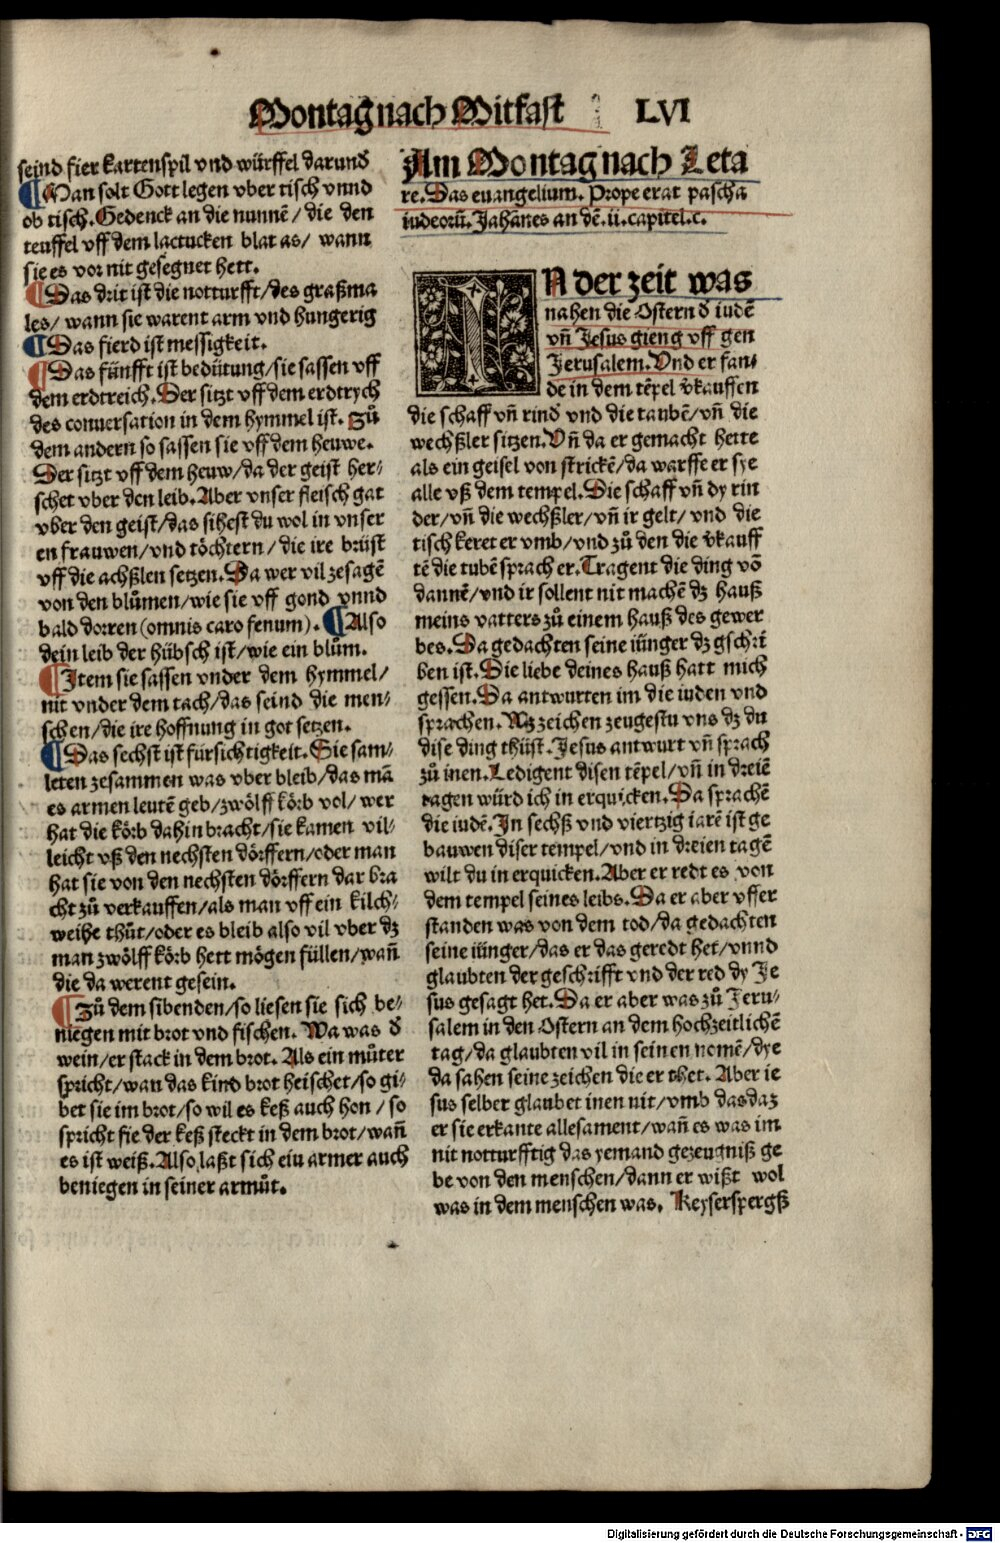 Montag nach Mitfast LVI
seind fier kartenspil vnd würffel darund̕
¶ Man solt Gott legen vber tisch vnnd
ob tisch. Gedenck an die nunnē/ die den
teuffel vff dem lactucken blat as/ wann
sie es vor nit gesegnet hett.
¶ Das drit ist die notturfft/des graßma
les/ wann sie warent arm vnd hungerig
¶ Das fierd ist messigkeit.
¶ Das fünfft ist bedütung/sie sassen vff
dem erdtreich. Der sitzt vff dem erdtrych
des conuersation in dem hymmel ist. Zů
dem andern so sassen sie vff dem heuwe.
Der sitzt vff dem heuw/da der geist her/
schet vber den leib. Aber vnser fleisch gat
vber den geist/das sihest du wol in vnser
en frauwen/vnd töchtern/ die ire brüst
vff die achßlen setzen. Da wer vil zesagē
von den blůmen/wie sie vff gond vnnd
bald dorren (omnis caro fenum). ¶ Also
dein leib der hübsch ist/wie ein blům.
¶ Item sie sassen vnder dem hymmel/
nit vnder dem tach/das seind die men/
schen/die ire hoffnung in got setzen.
¶ Das sechst ist fürsichtigkeit. Sie sam/
leten zesammen was vber bleib/das mā
es armen leutē geb/zwölff körb vol/ wer
hat die körb dahin bracht/sie kamen vil/
leicht vß den nechsten dörffern/oder man
hat sie von den nechsten dörffern dar bra
cht zů verkauffen/als man vff ein kilch/
weihe thůt/oder es bleib also vil vber dz
man zwölff körb hett mögen füllen/wañ
die da werent gesein.
¶ Zů dem sibenden/so liesen sie sich be/
niegen mit brot vnd fischen. Wa was d̕
wein/er stack in dem brot. Als ein můter
spricht/wan das kind brot heischet/so gi/
bet sie im brot/so wil es keß auch hon / so
spricht sie der keß steckt in dem brot/wañ
es ist weiß. Also laßt sich ein armer auch
beniegen in seiner armůt.
Am Montag nach Leta
re. Das euangelium. Prope erat pascha
iudeorū. Jahānes an dē .ii. capitel. c.
IN der zeit was
nahen die Ostern d̕ iudē
vñ Jesus gieng vff gen
Jerusalem. Vnd er fan/
de in dem tēpel v̕kauffen
die schaff vñ rind vnd die taubē/vñ die
wechßler sitzen. Vñ da er gemacht hette
als ein geisel von strickē/da warffe er sye
alle vß dem tempel. Die schaff vñ dy rin
der/vñ die wechßler/vñ ir gelt/ vnd die
tisch keret er vmb/vnd zů den die v̕kauff
tē die tubē sprach er. Tragent die ding vō
dannē/vnd ir sollent nit machē dz hauß
meins vatters zů einem hauß des gewer
bes. Da gedachten seine iünger dz gschri
ben ist. Die liebe deines hauß hatt mich
gessen. Da antwurten im die iuden vnd
sprachen. Wz zeichen zeugestu vns dz du
dise ding thůst. Jesus antwurt vñ sprach
zů inen. Ledigent disen tēpel/vñ in dreiē
tagen würd ich in erquicken. Da sprachē
die iudē. In sechß vnd viertzig iarē ist ge
bauwen diser tempel/vnd in dreien tagē
wilt du in erquicken. Aber er redt es von
dem tempel seines leibs. Da er aber vffer
standen was von dem tod/da gedachten
seine iünger/das er das geredt het/vnnd
glaubten der geschrifft vnd der red dy Je
sus gesagt het. Da er aber was zů Jeru/
salem in den Ostern an dem hochzeitlichē
tag/da glaubten vil in seinen nomē/dye
da sahen seine zeichen die er thet. Aber ie
sus selber glaubet inen nit/vmb das daz
er sie erkante allesament/wañ es was im
nit notturfftig das yemand gezeugniß ge
be von den menschen/dann er wißt wol
was in dem menschen was. Keyserspergß
Digitalisierung gefördert durch die Deutsche Forschungsgemeinschaft - DFG